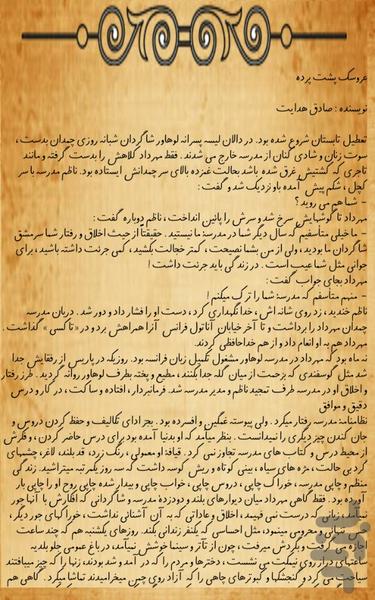 عروسک پشت پرده
نویسنده : صادق هدایت
تعطیل تابستان شروع شده بود. در دالان لیسه پسرانه لوهاور شاگردان شبانه روزی چمدان بدست ،
سوت زنان و شادی کنان از مدرسه خارج می شدند. فقط مهرداد کلاهش را بدست گرفته و مانند
تاجری که کشتیش غرق شده باشد بحالت غمزده بالای سر چمدانش ایستاده بود. ناظم مدرسه با سر
کچل ، شکم پیش آمده باو نزدیک شد و گفت :
- شما هم می روید ؟
مهرداد تا گوشهایش سرخ شد و سرش را پائین انداخت ، ناظم دوباره گفت :
- ما خیلی متأسفیم که سال دیگر شما در مدرسه ما نیستید. حقیقتاً از حیث اخلاق و رفتار شما سرمشق
شاگردان ما بودید ، ولی از من بشما نصیحت ، کمتر خجالت بکشید ، کمی جرئت داشته باشید ، برای
جوانی مثل شما عیب است . در زندگی باید جرئت داشت !
مهرداد بجای جواب گفت :
- منهم متأسفم که مدرسه شما را ترک میکنم !
ناظم خندید ، زد روی شانه اش ، خدا نگهداری کرد ، دست او را فشار داد و دور شد . دربان مدرسه
چمدان مهرداد را برداشت و تا آخر خیابان آناتول فرانس آنرا همراهش برد و در « تاکسی » گذاشت .
مهرداد هم به او انعام داد و از هم خداحافظی کردند.
نه ماه بود که مهرداد در مدرسه لوهاور مشغول تکمیل زبان فرانسه بود. روزیکه در پاریس از رفقایش جدا
شد مثل گوسفندی که بزحمت از میان گله جدا بکنند ، مطیع و پخته بطرف لوهاور روانه گردید. طرز رفتار
و اخلاق او در مدرسه طرف تمجید ناظم و مدیر مدرسه شد. فرمانبردار ، افتاده و ساکت ، در کار و درس
دقیق و موافق
نظامنامه مدرسه رفتار میکرد . ولی پیوسته غمگین و افسرده بود. بجز ادای تکالیف و حفظ کردن دروس و
جان کندن چیز دیگری را نمیدانست . بنظر میآمد که او بدنیا آمده بود برای درس حاضر کردن ، و فکرش
از محیط درس و کتاب های مدرسه تجاوز نمی کرد. قیافه او معمولی ، رنگ زرد، قد بلند، لاغر، چشمهای
گرد بی حالت ، مژه های سیاه ، بینی کوتاه و ریش کوسه داشت که سه روز یکمرتبه میتراشید. زندگی
منظم و چاپی مدرسه ، خوراک چاپی ، درس چاپی ، خواب چاپی و بیدار شدن چاپی روح او را چاپی بار
آورده بود. فقط گاهی مهرداد میان دیوارهای بلند و دودزده مدرسه و شاگردانی که افکارش با آنها جور
نمیآمد، زبانی که درست نمی فهمید، اخلاق و عاداتی که به آن آشنائی نداشت ، خوراکهای جور دیگر ،
حس تنهائی و محرومی مینمود، مثل احساسی که یکنفر زندانی بکند. روزهای یکشنبه هم که چند ساعت
اجازه میگرفت و بگردش میرفت ، چون از تآتر و سینما خوشش نمیآمد، در باغ عمومی جلو بلدیه
ساعتهای دراز روی نیمکت می نشست ، دخترها و مردم را که در آمد و شد بودند، زنها را که چیز میبافتند
سیاحت می کرد و گنجشکها و کبوترهای چاهی را که آزاد روی چمن میخرامیدند تماشا میکرد . گاهی هم